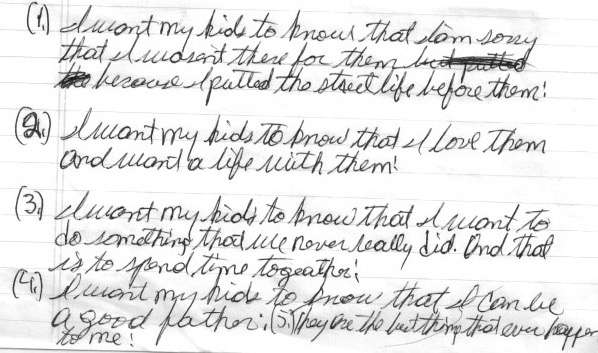 (1.) I want my kids to know that I am sorry
that I wasent there for them but putted
the because I putted the street life before them!
(2.) I want my kids to know that I love them
and want a life with them!
(3.) I want my kids to know that I want to
do something that we never really did. And that
is to spend time togeather!
(4.) I want my kids to know that I can be
a good father! (5.) They are the best thing that ever happen
to me!